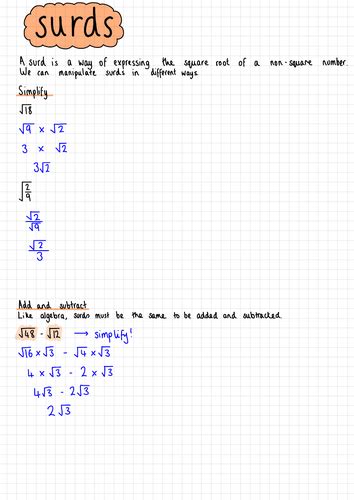 surds
A surd is a way of expressing the square root of a non-square number.
We can manipulate surds in different ways.
Simplify
√18
√9 × √2
3 × √2
3√2
√(2/9)
√2/√9
√2/3
Add and subtract
Like algebra, surds must be the same to be added and subtracted.
√48 - √12 → simplify!
√16 × √3 - √4 × √3
4 × √3 - 2 × √3
4√3 - 2√3
2√3